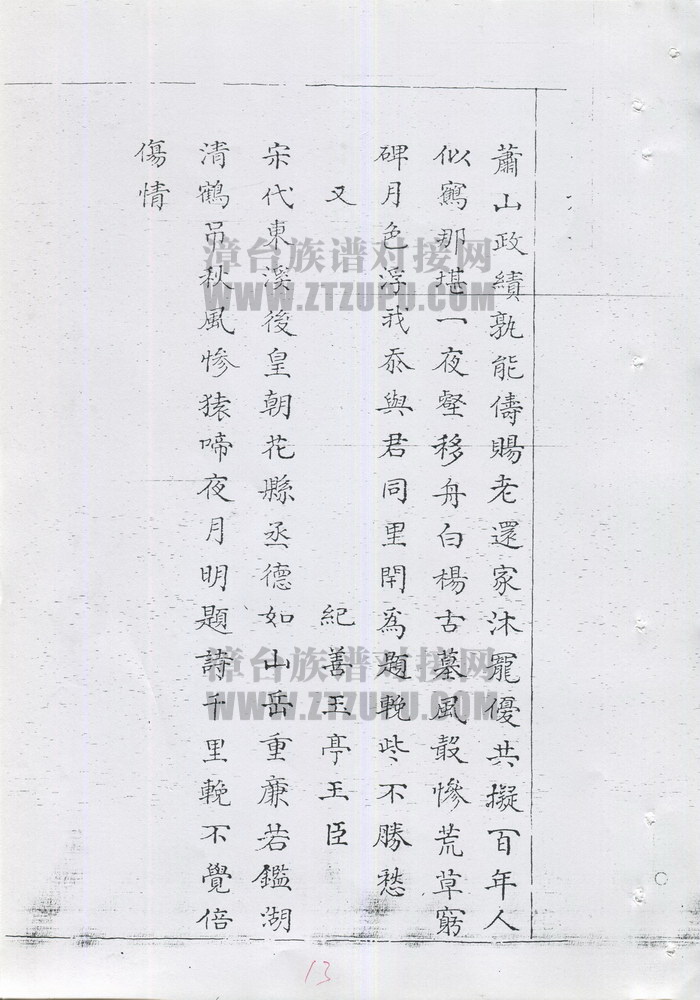 蕭山政績孰能儔賜老還家沐寵優共擬百年人
似寫那堪一夜壑移舟白楊古墓風敲慘荒草窮
碑月色浮我忝與君同里閈為題輓些不勝愁
又　紀善王亭王臣
宋代東溪後皇朝花縣丞德如山岳重廉若鑑湖
清鶴吊秋風慘猿啼夜月明題詩千里輓不覺倍
傷情
漳台族谱对接网
WWW.ZTZUPU.COM
漳台族谱对接网
WWW.ZTZUPU.COM
13